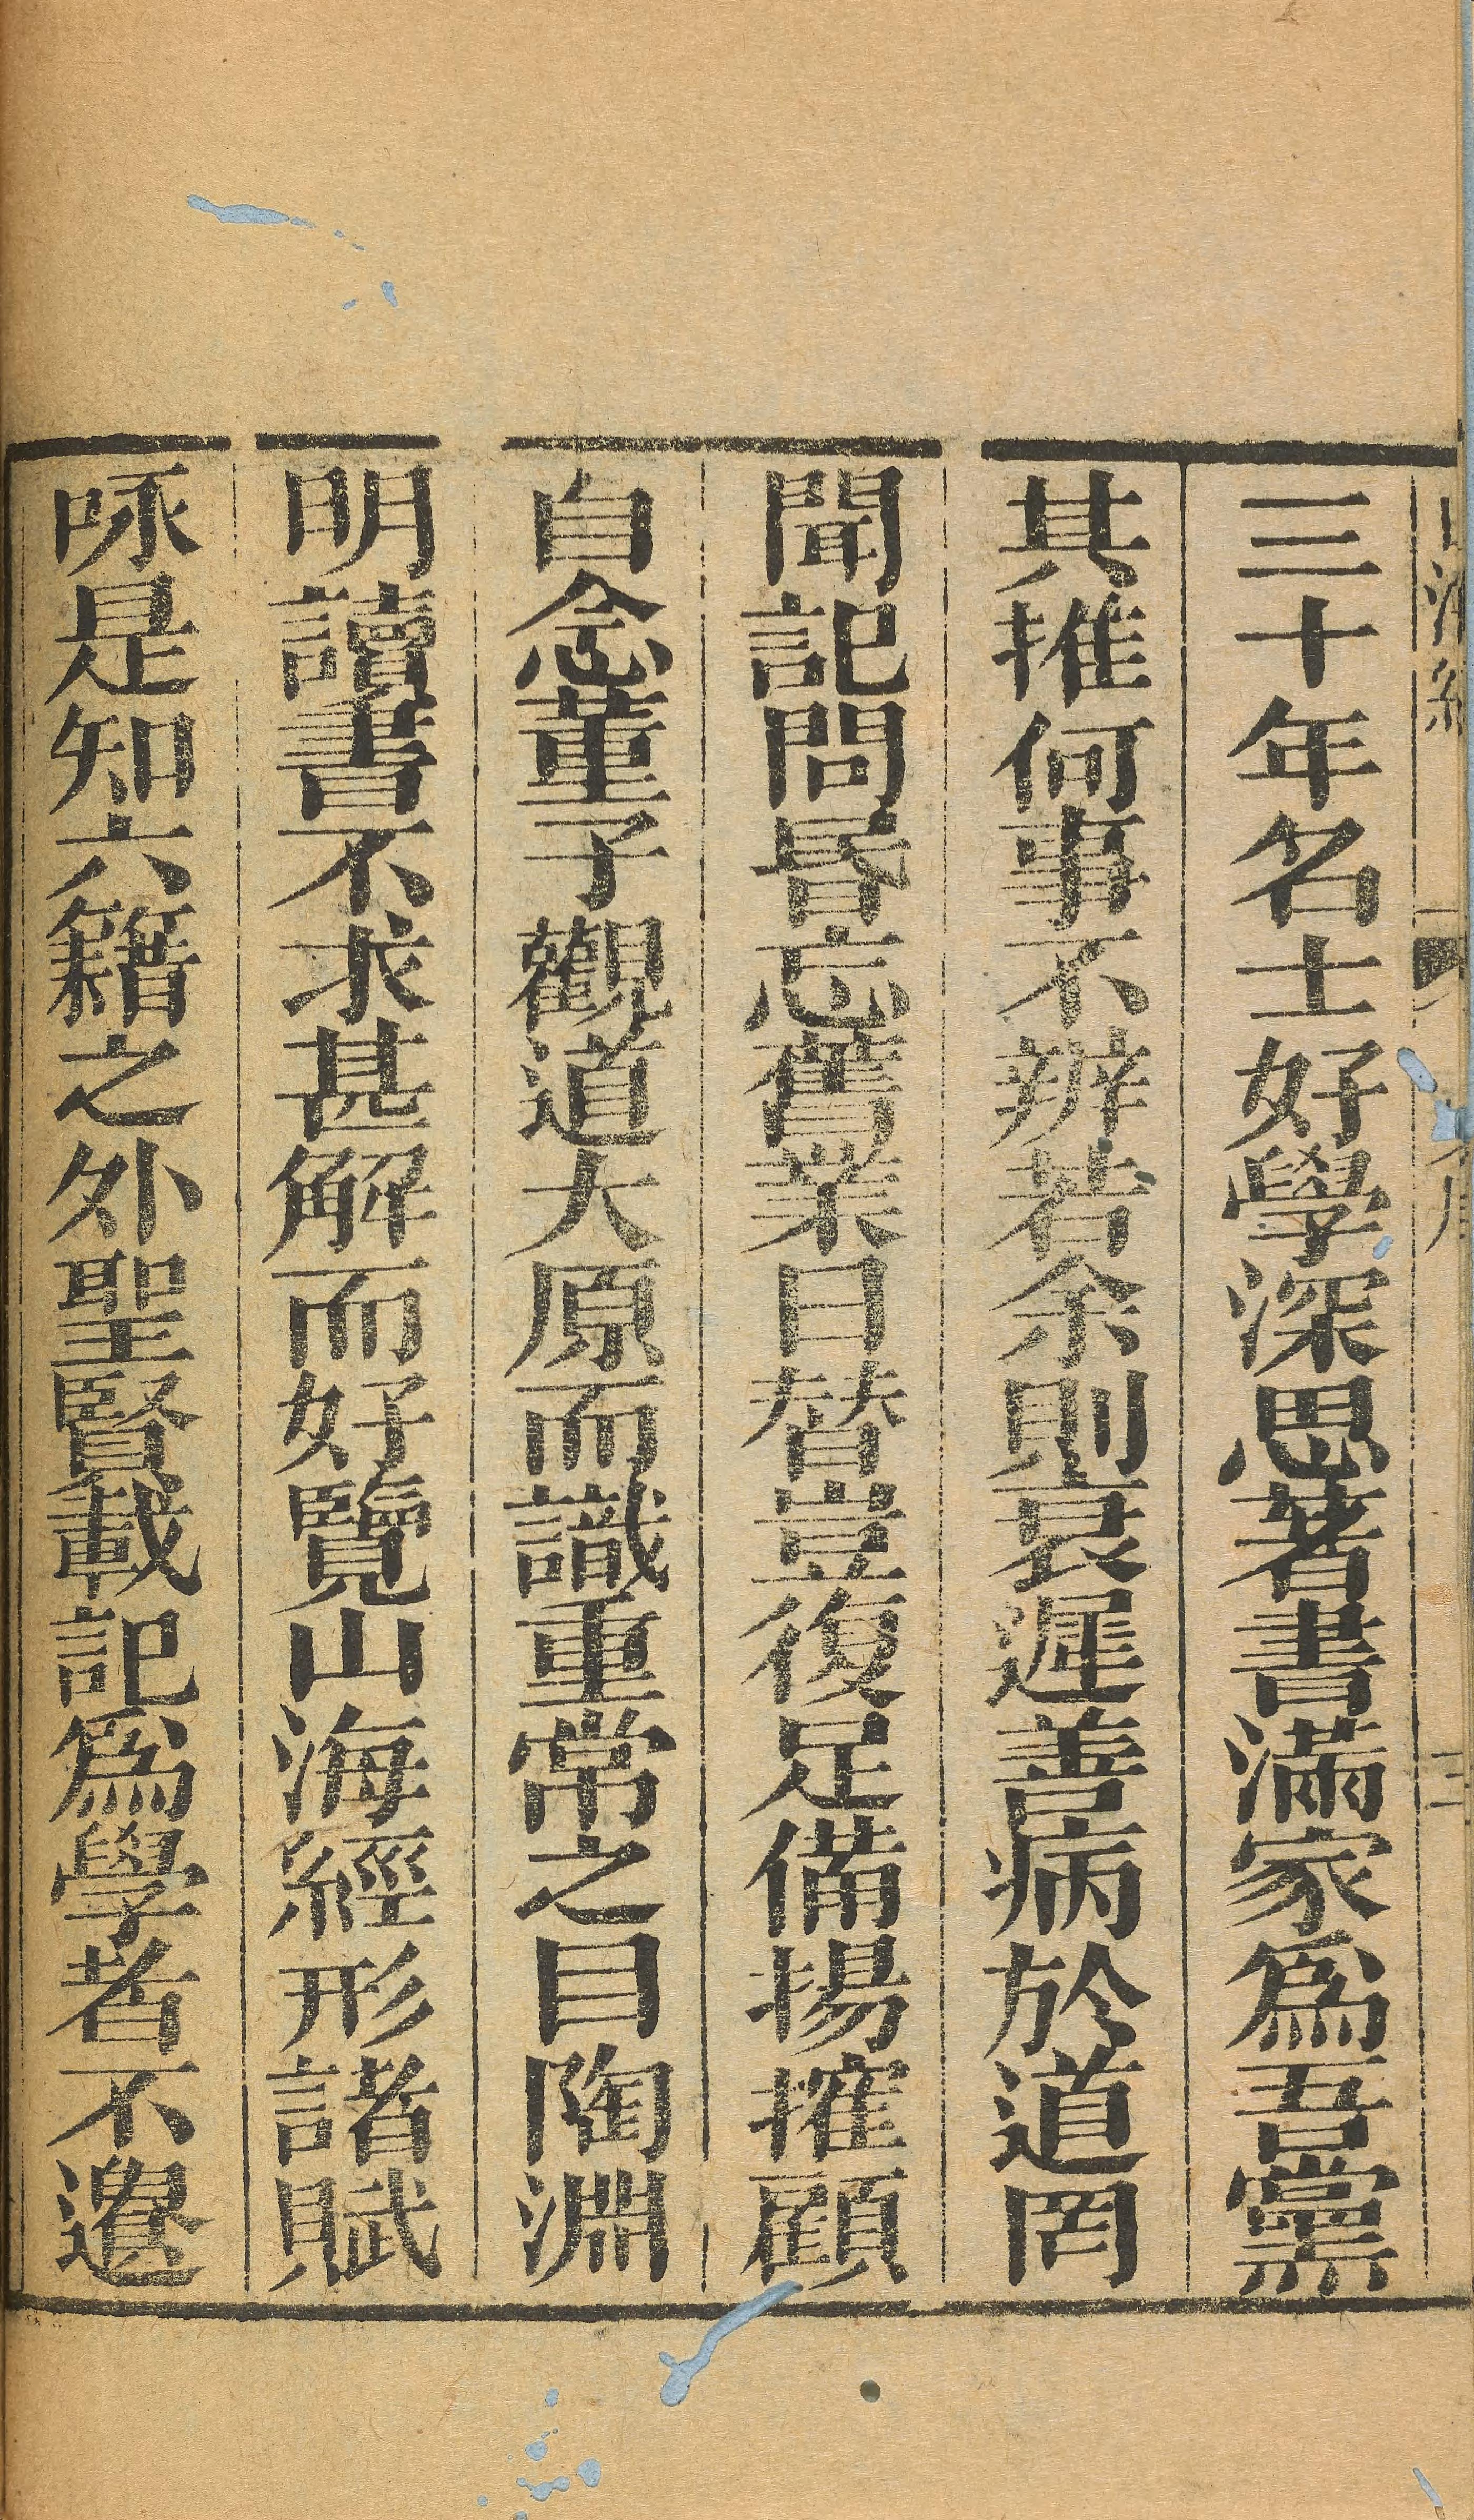 三十年名士好學深思著書滿家爲吾黨
其推何事不辨若余則衰遲善病於道罔
聞記問昬忘舊業日替豈復足備揚搉顧
自念董子觀道大原而識重常之目陶淵
明讀書不求甚解而好覽山海經形諸賦
咏是知六籍之外聖賢載記爲學者不遺